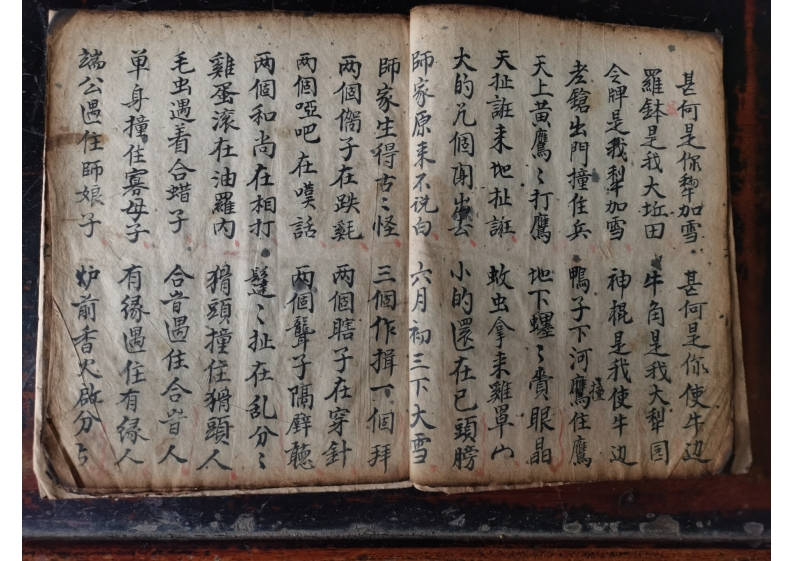 甚何是你犁加雪 甚何是你使牛边
羅鉢是我大坵田 牛角是我大犁园
令牌是我犁加雪 神棍是我使牛边
老鎗出門撞住兵 鴨子下河鷹撞住鷹
天上黄鷹〻打鷹 地下螺〻賣眼晶
天扯誑来地扯誑 蚊虫拿来雞單山
大的几個 小的還在巳頭膀
師家原来不说白 六月初三下大雪
師家生得古〻怪 三個作揖一個拜
两個在跌毽 两個瞎子在穿針
两個啞吧在嘆話 两個聾子隔壁聽
两個和尚在相打 〻扯在乱分〻
雞蛋滚在油羅内 猾頭撞住猾頭人
毛虫遇着合蜡子 合訔遇住合訔人
单身撞住寡母子 有缘遇住有缘人
端公遇住師娘子 炉前香火啟分